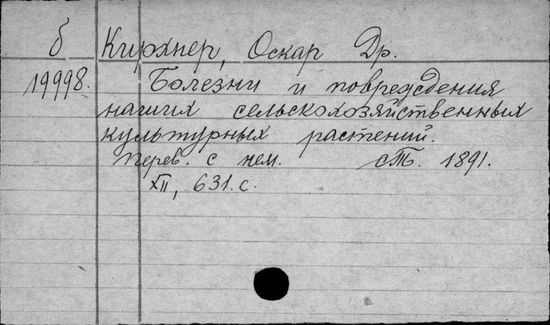 б Кирхнер, Оскар Др.
19998. Болезни и повреждения
наших сельскохозяйственных
культурных растений.
Перев. с нем. СПб. 1891.
XII, 631.с.